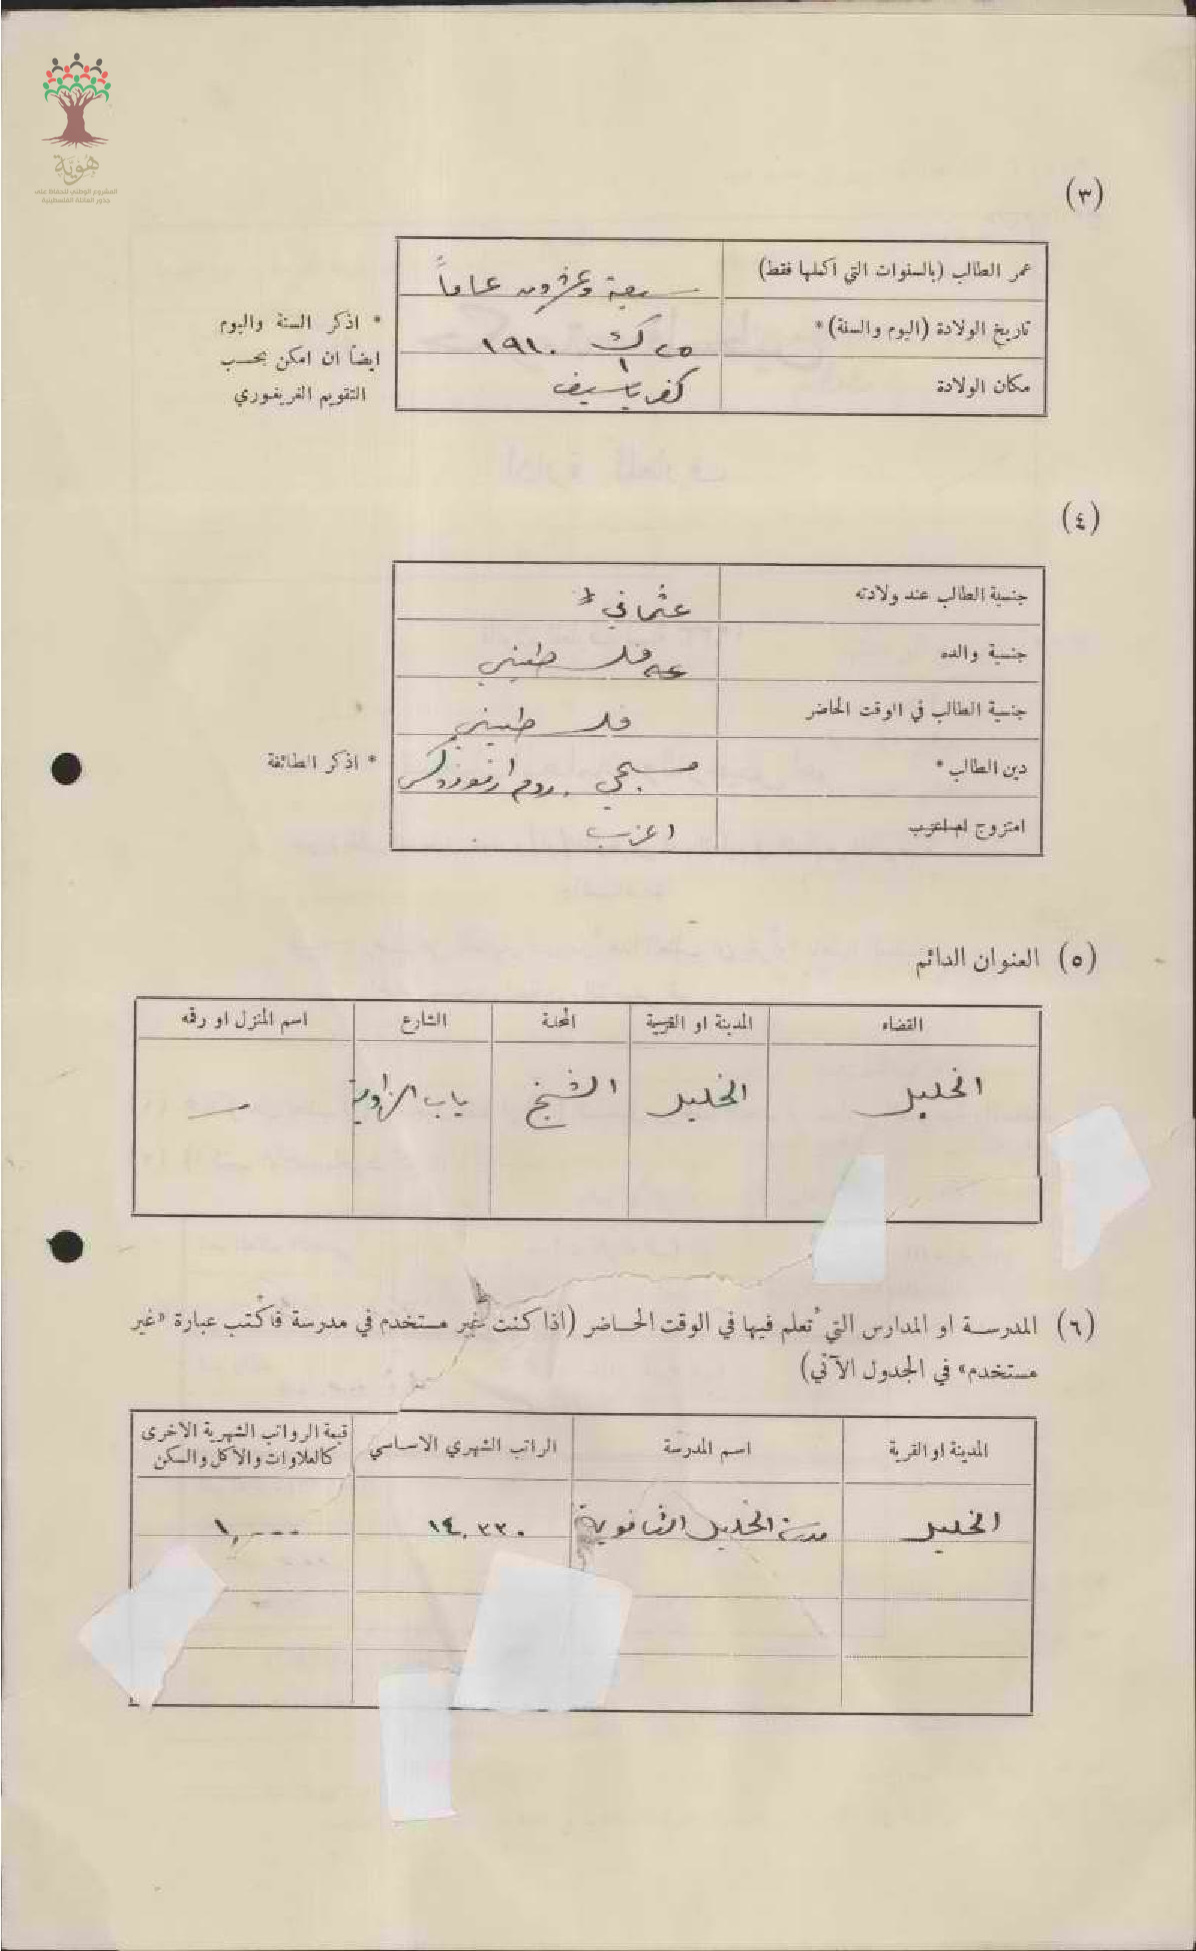 هُوَيّة
المشروع الوطني للحفاظ على
جذور العائلة الفلسطينية
(٣)
عمر الطالب (بالسنوات التي اكملها فقط) سبعة وعشرون عاماً
تاريخ الولادة (اليوم والسنة)* ٢٥ ك ١ ١٩١٠
مكان الولادة كفر ياسيف
* اذكر السنة واليوم
ايضاً ان امكن بحسب
التقويم الغريغوري
(٤)
جنسية الطالب عند ولادته عثماني
جنسية والده فلسطيني
جنسية الطالب في الوقت الحاضر فلسطيني
دين الطالب* مسيحي . روم ارثوذوكس
* اذكر الطائفة
امتزوج ام اعزب اعزب
(٥) العنوان الدائم
القضاء المدينة او القرية المحلة الشارع اسم المنزل او رقمه
الخليل الخليل الشيخ باب الزاوية —
(٦) المدرسة او المدارس التي تُعلم فيها في الوقت الحاضر (اذا كنت غير مستخدم في مدرسة فاكتب عبارة «غير
مستخدم» في الجدول الآتي)
المدينة او القرية اسم المدرسة الراتب الشهري الاساسي قيمة الرواتب الشهرية الاخرى
كالعلاوات والأكل والسكن
الخليل مدرسة الخليل الثانوية ١٤,٣٣٠ ١,٠٠٠